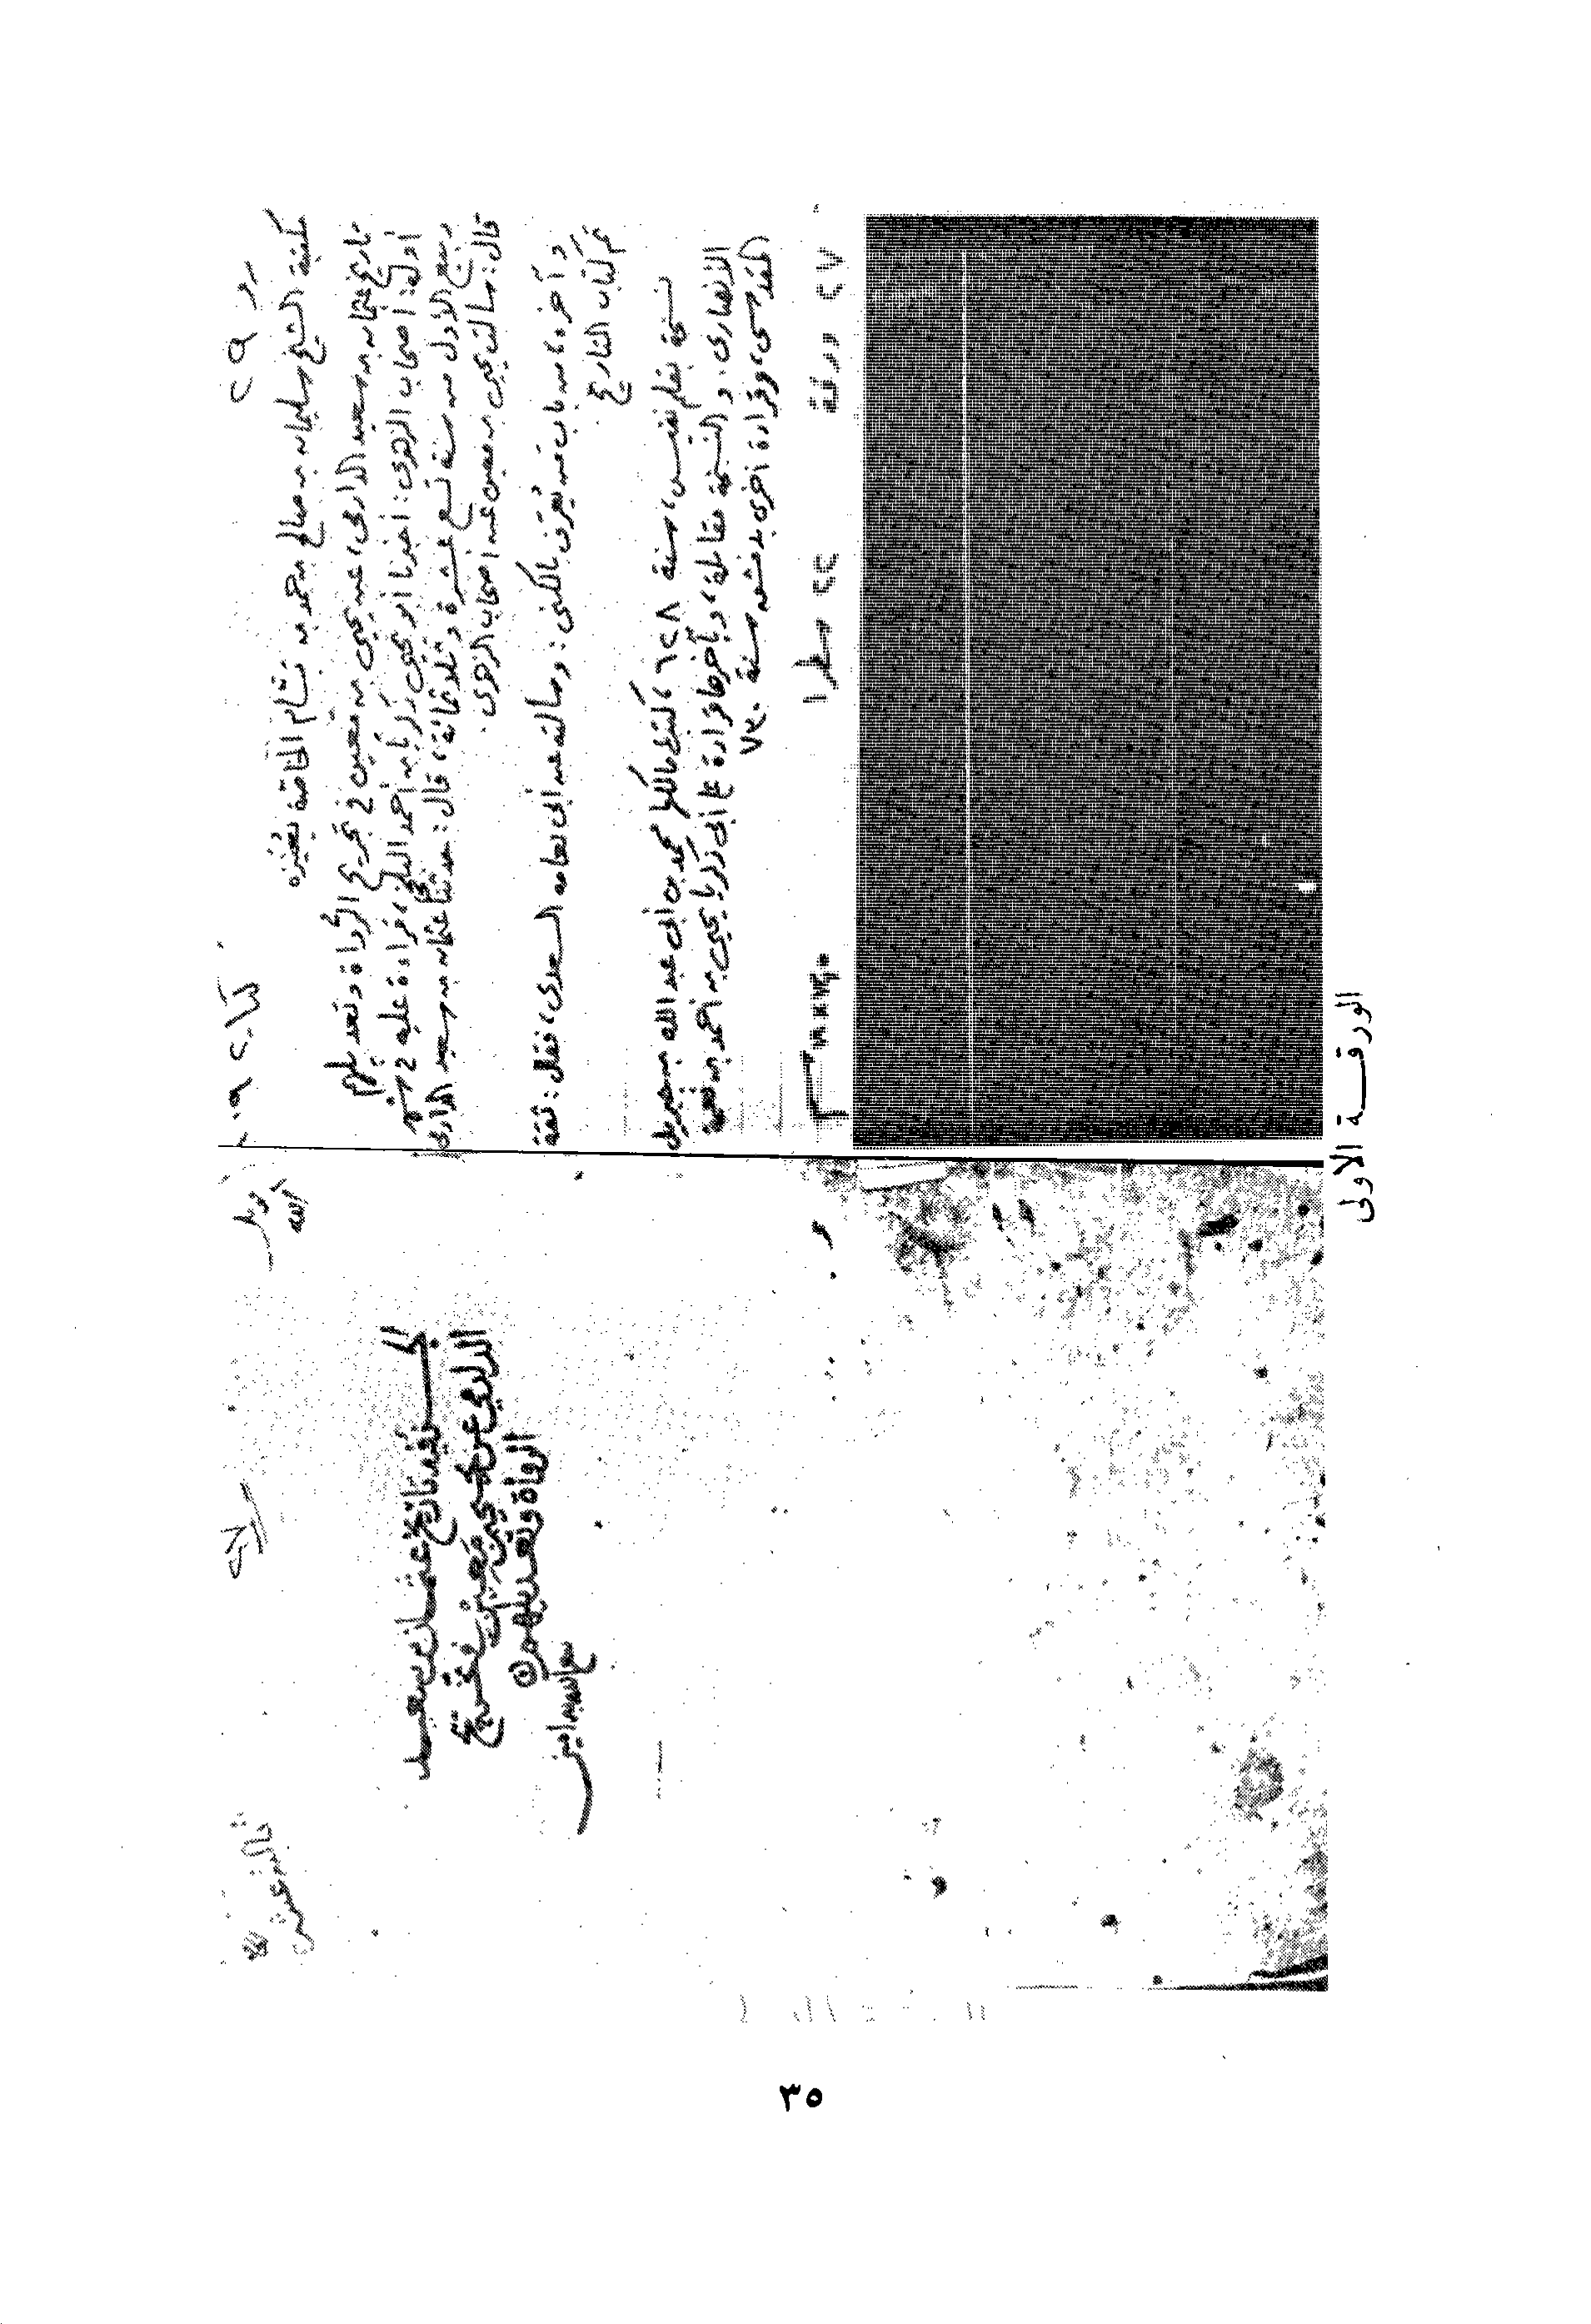 مكتبة الشيخ سليمان بن صالح بن حمد بن بسام الخاصة بعنيزه
تاريخ عثمان بن سعيد الدارمى، عن يحيى بن معين فى تجريح الرواة وتعديلهم
أوله: أصحاب الزهرى: أخبرنا أبو يحيى زكريا بن أحمد البلخى، قراءة عليه فى شهر
ربيع الأول من سنة تسع عشرة وثلاثمائة، قال: حدثنا عثمان بن سعيد الدارمى
قال: سألت يحيى بن معين عن أصحاب الزهرى.
وآخره، من باب من يعرف بالكنى: وسألته عن أبى نعامه السعدى، فقال: ثقة
تم كتاب التاريخ
نسخة بقلم نفيس، سنة ٦٢٨، كتبها محمد بن أبى عبد الله بن جبريل
الأنصارى. والنسخة مقابلة، وبآخرها قراءة على أبى زكريا يحيى بن أحمد بن نعمة
المقدسى، وقراءة أخرى بدمشق سنة ٧٣٠
٢٧ ورقة ٢٢ سطرا
تاريخ عثمان بن سعيد
الدارمي عن يحيى بن معين في تجريح
الرواة وتعديلهم
الورقـــة الاولى
٣٥